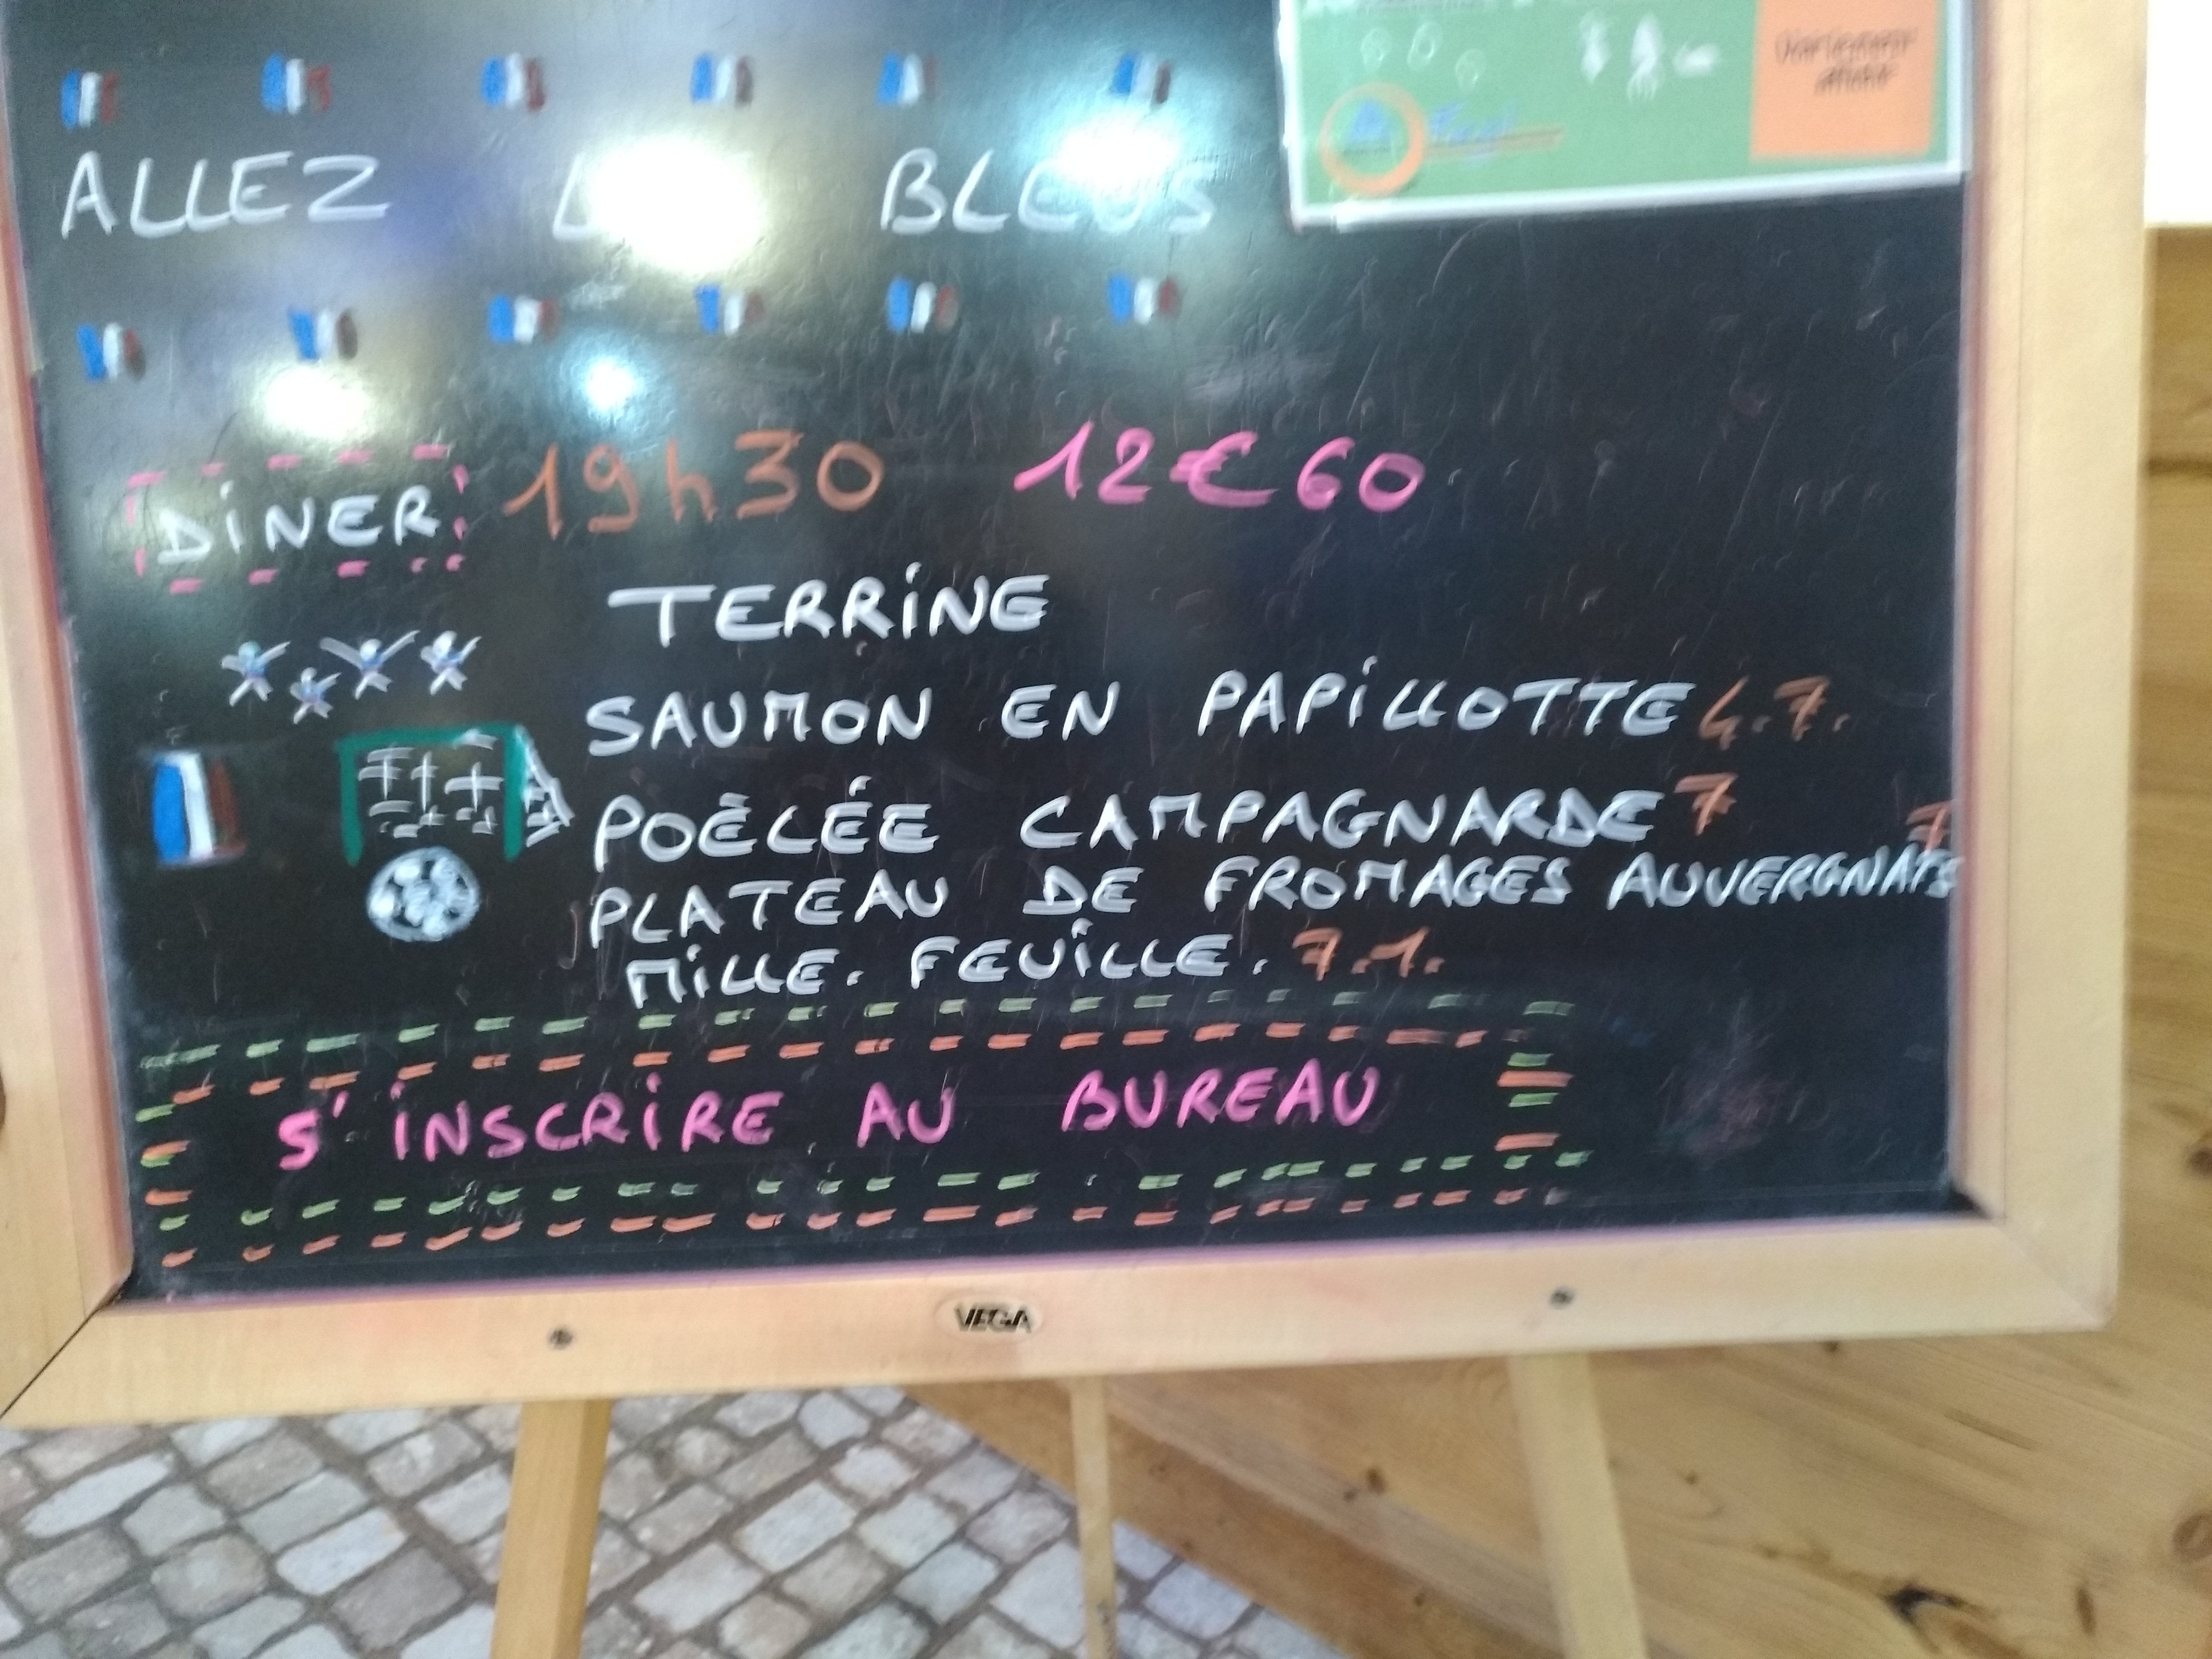 ALLEZ BLEUS
DINER 19h30 12€60
TERRINE
SAUMON EN PAPILLOTTE 4.7.
POÈLÉE CAMPAGNARDE 7
7
PLATEAU DE FROMAGES AUVERGNATS
MILLE.FEUILLE. 7.1.
S'INSCRIRE AU BUREAU
VEGA